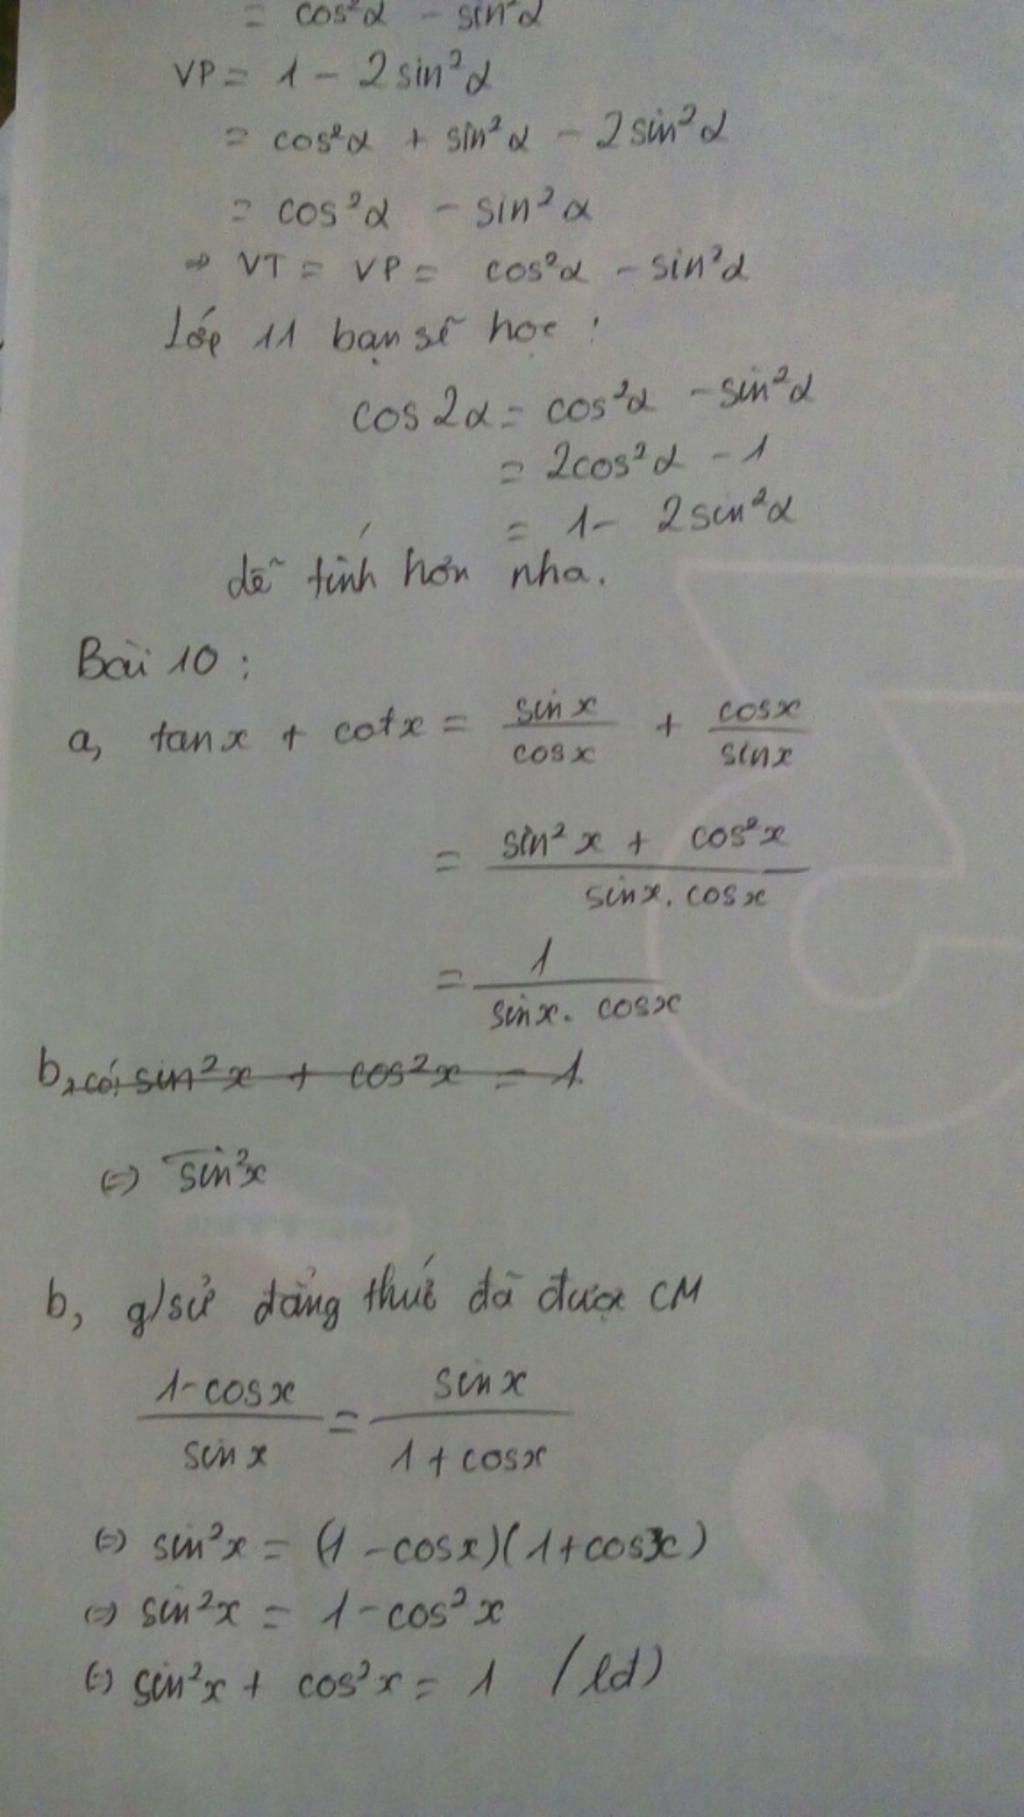 = cos²α - sin²α
VP = 1 - 2sin²α
= cos²α + sin²α - 2sin²α
= cos²α - sin²α
⇒ VT = VP = cos²α - sin²α
Lớp 11 bạn sẽ học :
cos2α = cos²α - sin²α
= 2cos²α - 1
= 1 - 2sin²α
dễ tính hơn nha.
Bài 10 :
a, tanx + cotx = sinx/cosx + cosx/sinx
= (sin²x + cos²x)/(sinx. cosx)
= 1/(sinx. cosx)
b, có: sin²x + cos²x = 1
⇔ sin²x
b, g/sử đẳng thức đã được CM
(1-cosx)/sinx = sinx/(1+cosx)
⇔ sin²x = (1-cosx)(1+cosx)
⇔ sin²x = 1-cos²x
⇔ sin²x + cos²x = 1 (lđ)
12